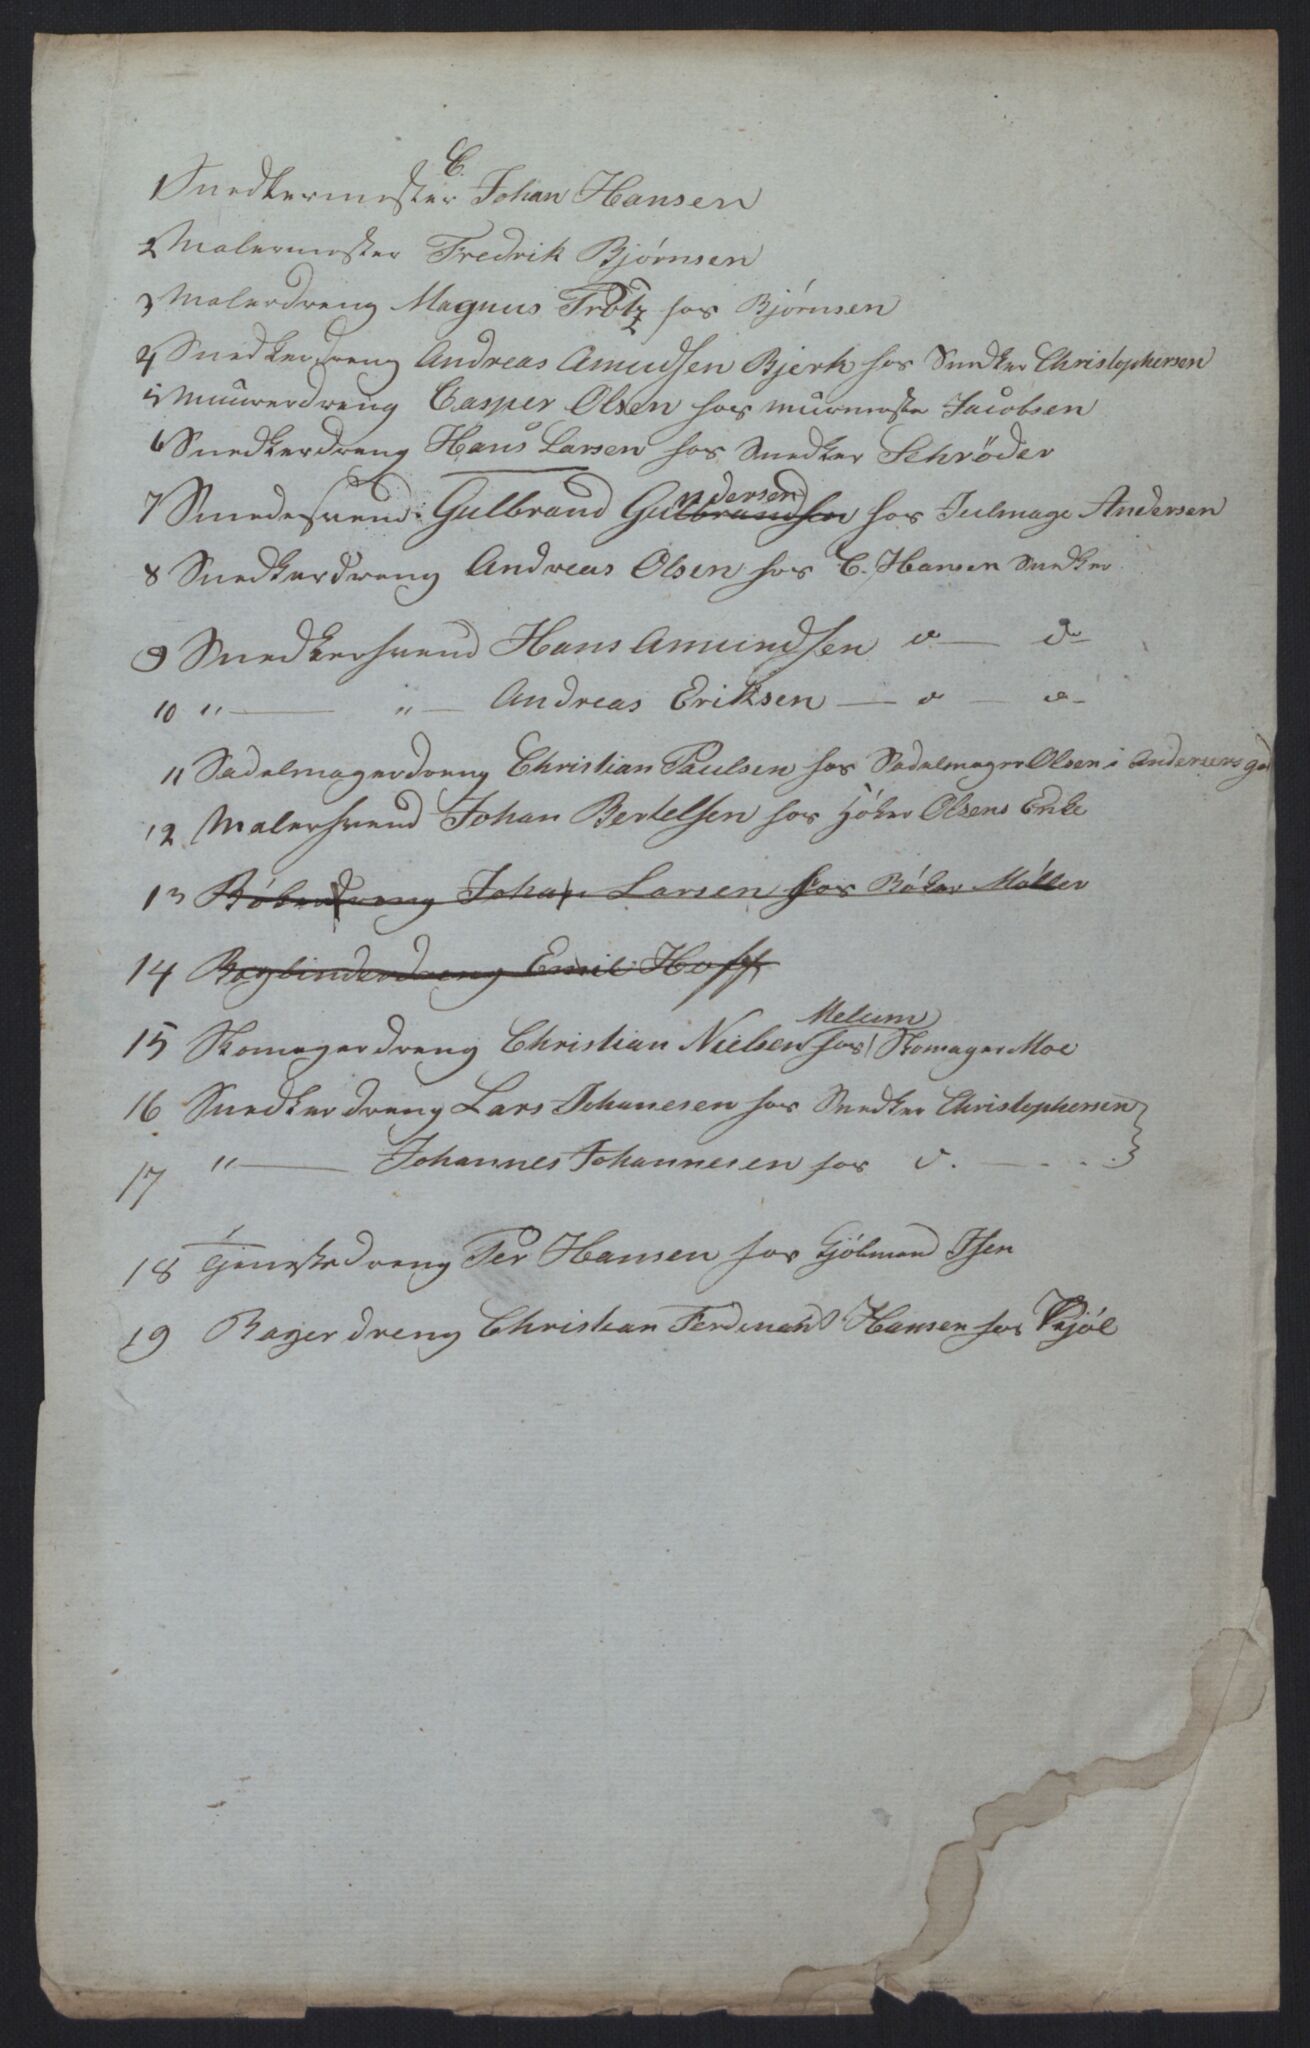 1 Snedkermester C. Johan Hansen
2 Malermester Fredrik Bjørnsen
3 Malerdreng Magnus Trotz hos Bjørnsen
4 Snedkerdreng Andreas Amudsen Bjerk hos Snedker Christophersen
5 Muurerdreng Casper Olsen hos Murmester Jacobsen
6 Snedkerdreng Hans Larsen hos Snedker Schrøder
7 Smedesvend Gulbrand Gulbrandsen ndersen hos Julmage Andersen
8 Snedkerdreng Andreas Olsen hos C. Hansen Snedker
9 Snedkersvend Hans Amundsen do — do
10 " — " — Andreas Eriksen — do — do
11 Sadelmagerdreng Christian Paulsen hos Sadelmager Olsen i Andersens
12 Malersvend Johan Bertelsen hos Høker Olsens Enke
13 Bøkerdreng Johan Larsen hos Bøker Møller
14 Bogbinderdreng Emil Hoff
15 Skomagerdreng Christian Nielsen Melum hos Skomager Moe
16 Snedkerdreng Lars Johanesen hos Snedker Christophersen
17 " — Johannes Johannesen hos do
18 Tjenestedreng Per Hansen hos Isen
19 Bagerdreng Christian Ferdinand Hansen hos